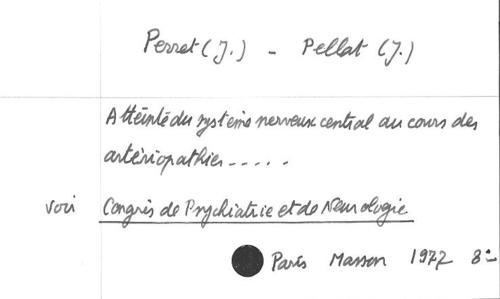 Perret (J.) - Pellat (J.)
Atteinte du système nerveux central au cours des
artériopathies.....
voir Congrès de Psychiatrie et de Neurologie
Paris Masson 1977 8º